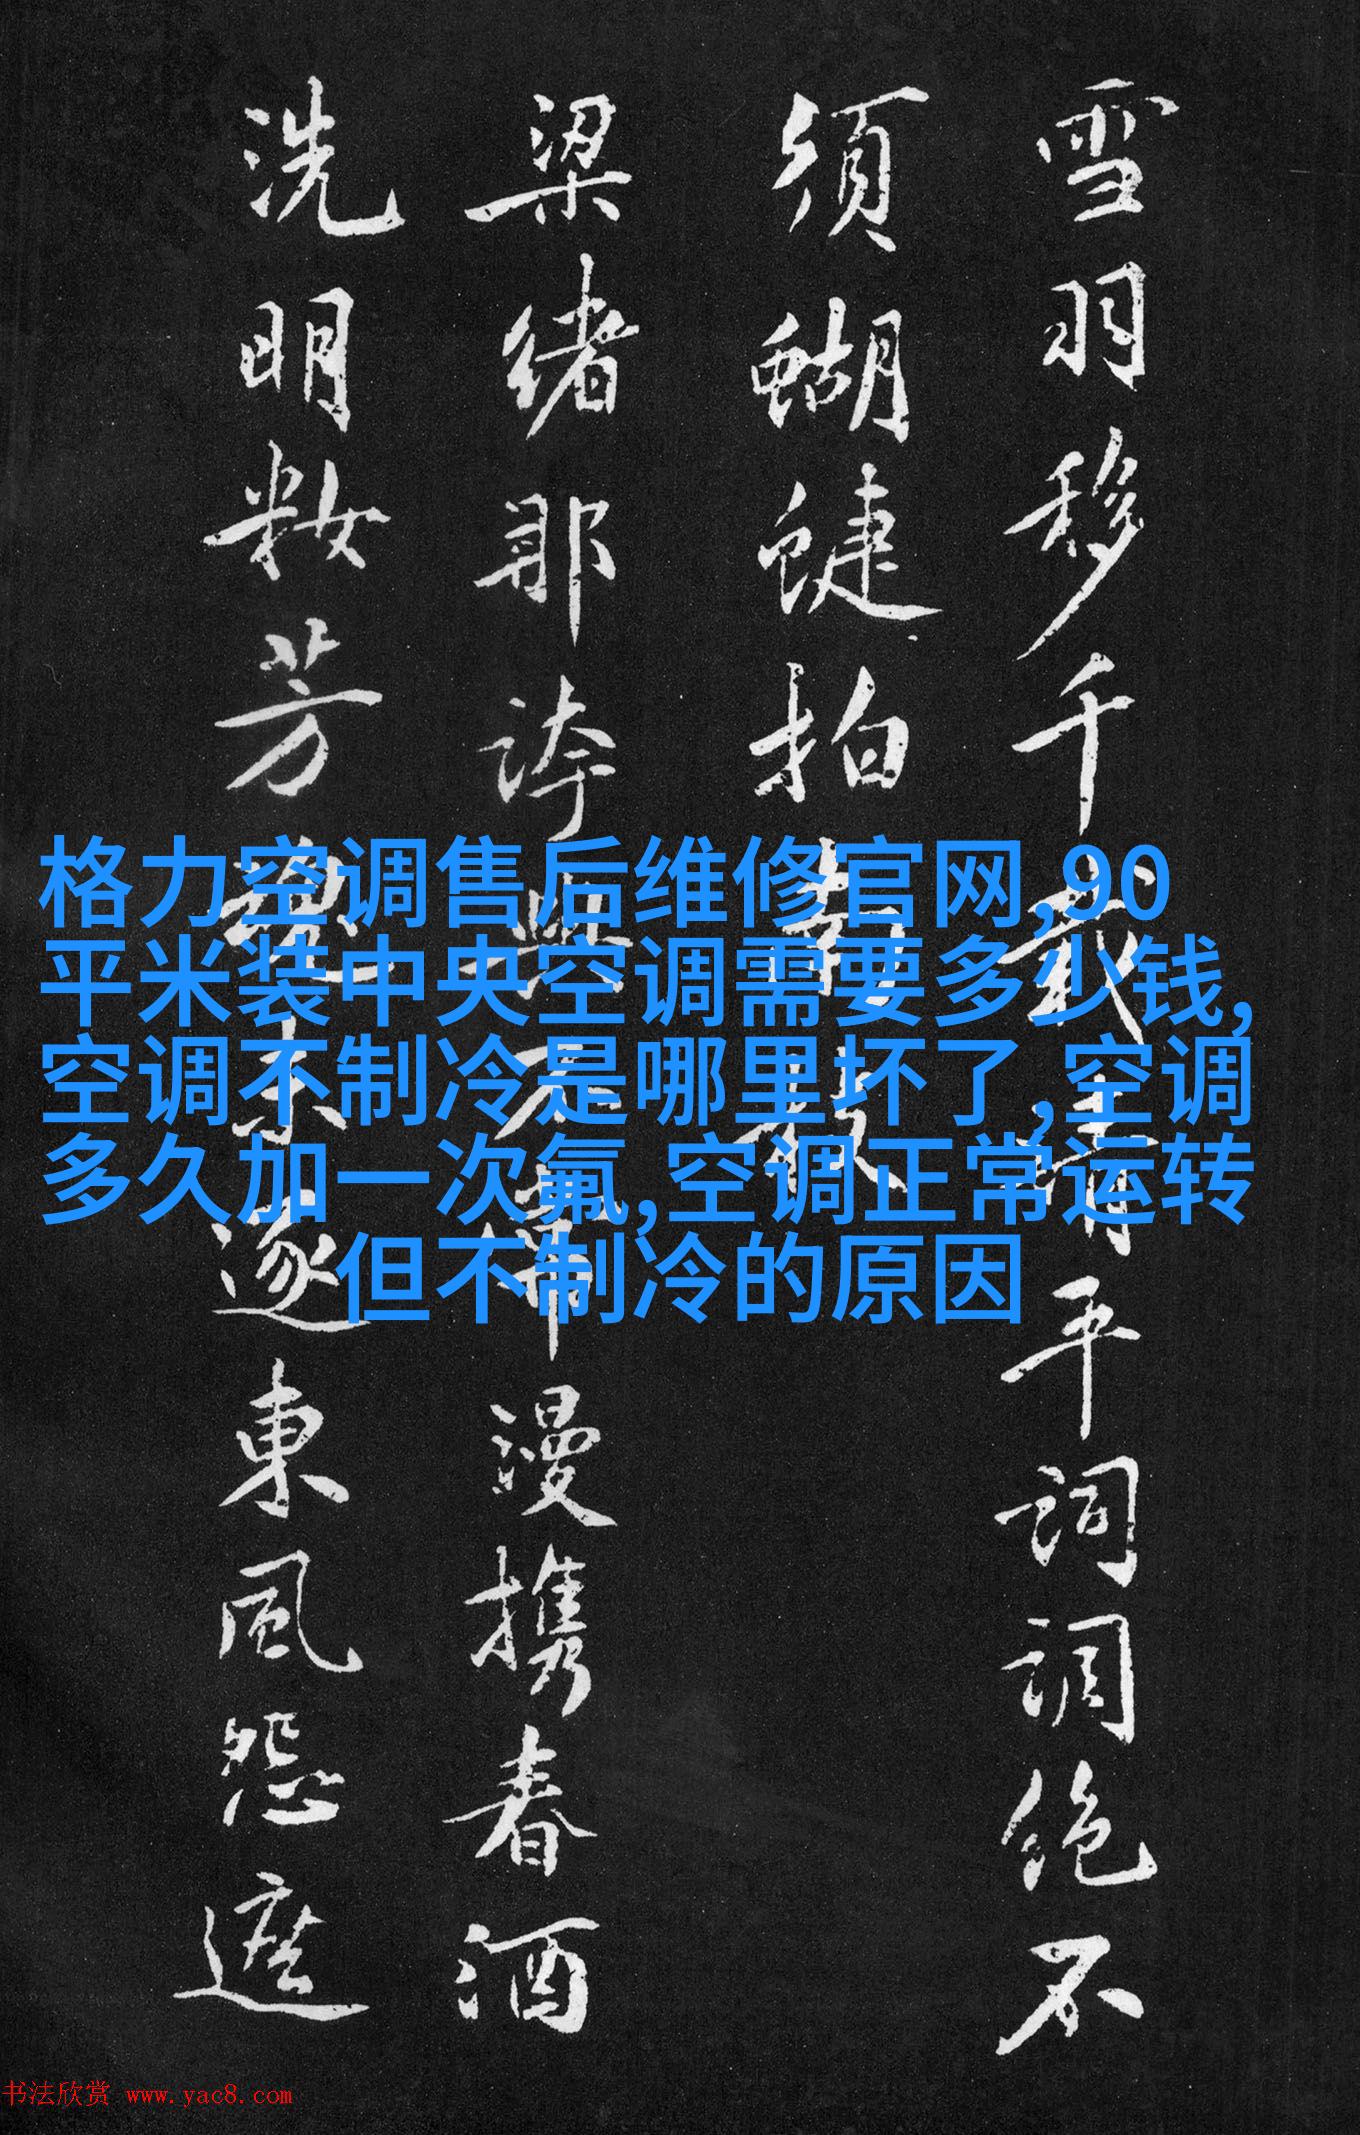 雪羽移千載清平詞調絶不
須蝴蝶拍
梁緒那誇與不漫携春酒
洗明籹芳逐東風怨遮
格力空调售后维修官网,90
平米装中央空调需要多少钱,
空调不制冷是哪里坏了,空调
多久加一次氟,空调正常运转
但不制冷的原因
书法欣赏 www.yac8.com